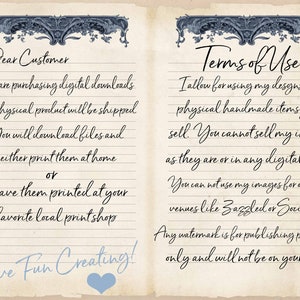 Dear Customer
are purchasing digital downloads
physical product will be shipped
You will download files and
either print them at home
or
have them printed at your
favorite local print shop
Have Fun Creating!
Terms of Use
I allow for using my designs
physical handmade items
sell. You cannot sell my
as they are or in any digital
You can not use my images for
venues like Zazzled or
Any watermark is for publishing
only and will not be on your